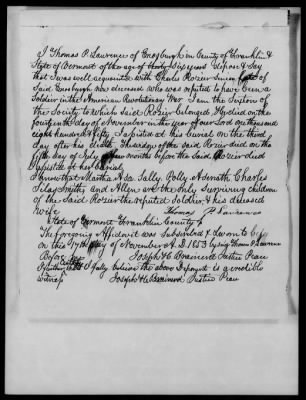 I Thomas P. Lawrence of Enosburgh in County of Franklin &
State of Vermont of the age of thirty Six years depose & Say
that I was well acquainted with Charles Rozier Senior late of
Said Enosburgh now deceased who was reputed to have been a
Soldier in the American Revolutionary War. I am the Sexton of
the Society to which Said Rozier belonged, He died on the
fourteenth day of November in the year of our Lord one thousand
eight hundred & fifty. I assisted at his burial on the third
day after his death. The wife of the said Rozier died on the
fifth day of July four months before the said Rozier died
I assisted at her burial.
I know that Martha, Asa, Sally, Polly, Asenath, Charles
Silas, Smith, and Allen are the only Surviving children
of the Said Rozier the reputed Soldier, & his deceased
Wife. Thomas P. Lawrence
State of Vermont Franklin County Ss
The foregoing Affidavit was Subscribed & Sworn to by
on this 17th day of November A.D. 1853 by said Thomas P. Lawrence
Before Joseph H. Brainerd Justice Peace
I fully believe the above Deponent is a credible
witness Joseph H. Brainerd Justice Peace